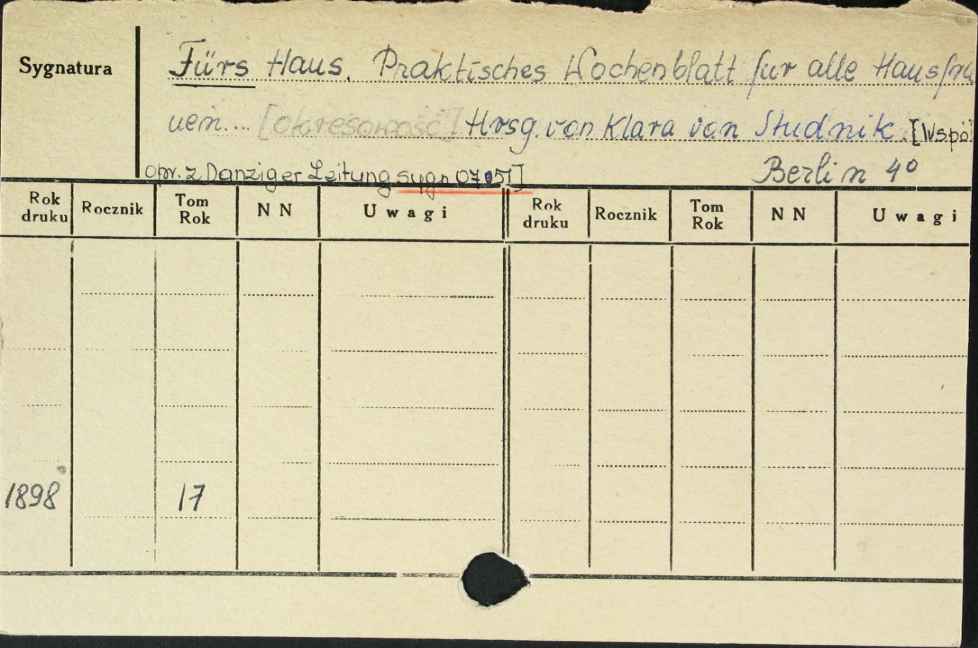 Sygnatura
Fürs Haus. Praktisches Wochenblatt fur alle Hausfra
uen... [okresowość] Hrsg. von Klara von Studnik. [Wspó
opr. z Danziger Zeitung sygn 0705/] Berlin 4°
Rok druku Rocznik Tom Rok NN Uwagi Rok druku Rocznik Tom Rok NN Uwagi
1898 17